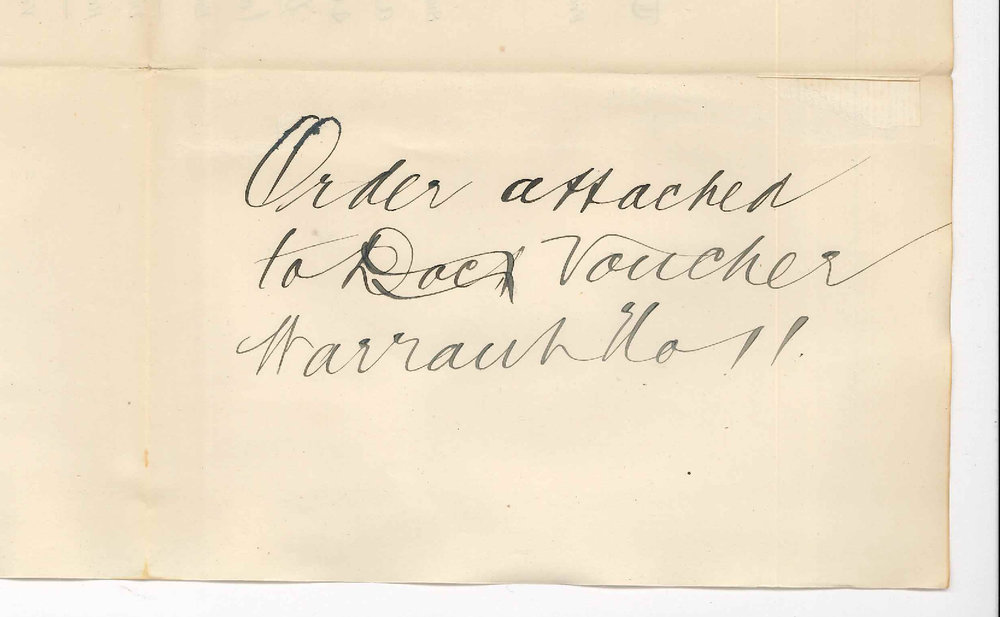 Order attached
to Doct Voucher
Warrant No 11.